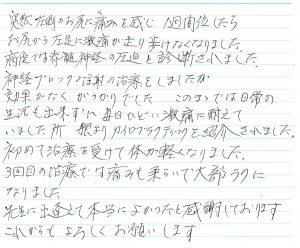 突然左側のお尻に痛みを感じ 1週間位したら
お尻から左足に激痛が走り歩けなくなりました。
病院では脊髄神経の圧迫と診断されました。
神経ブロック注射の治療をしましたが
効果がなく がっかりでした このままでは日常の
生活も出来ずに毎日ひどい激痛に耐えて
いました所 カイロプラクティックを紹介されました。
初めて治療を受けて体が軽くなりました。
3回目の治療では痛みも柔らいで大部ラクに
なりました
先生に出逢えて本当によかったと感謝しております
これからもよろしくお願いします